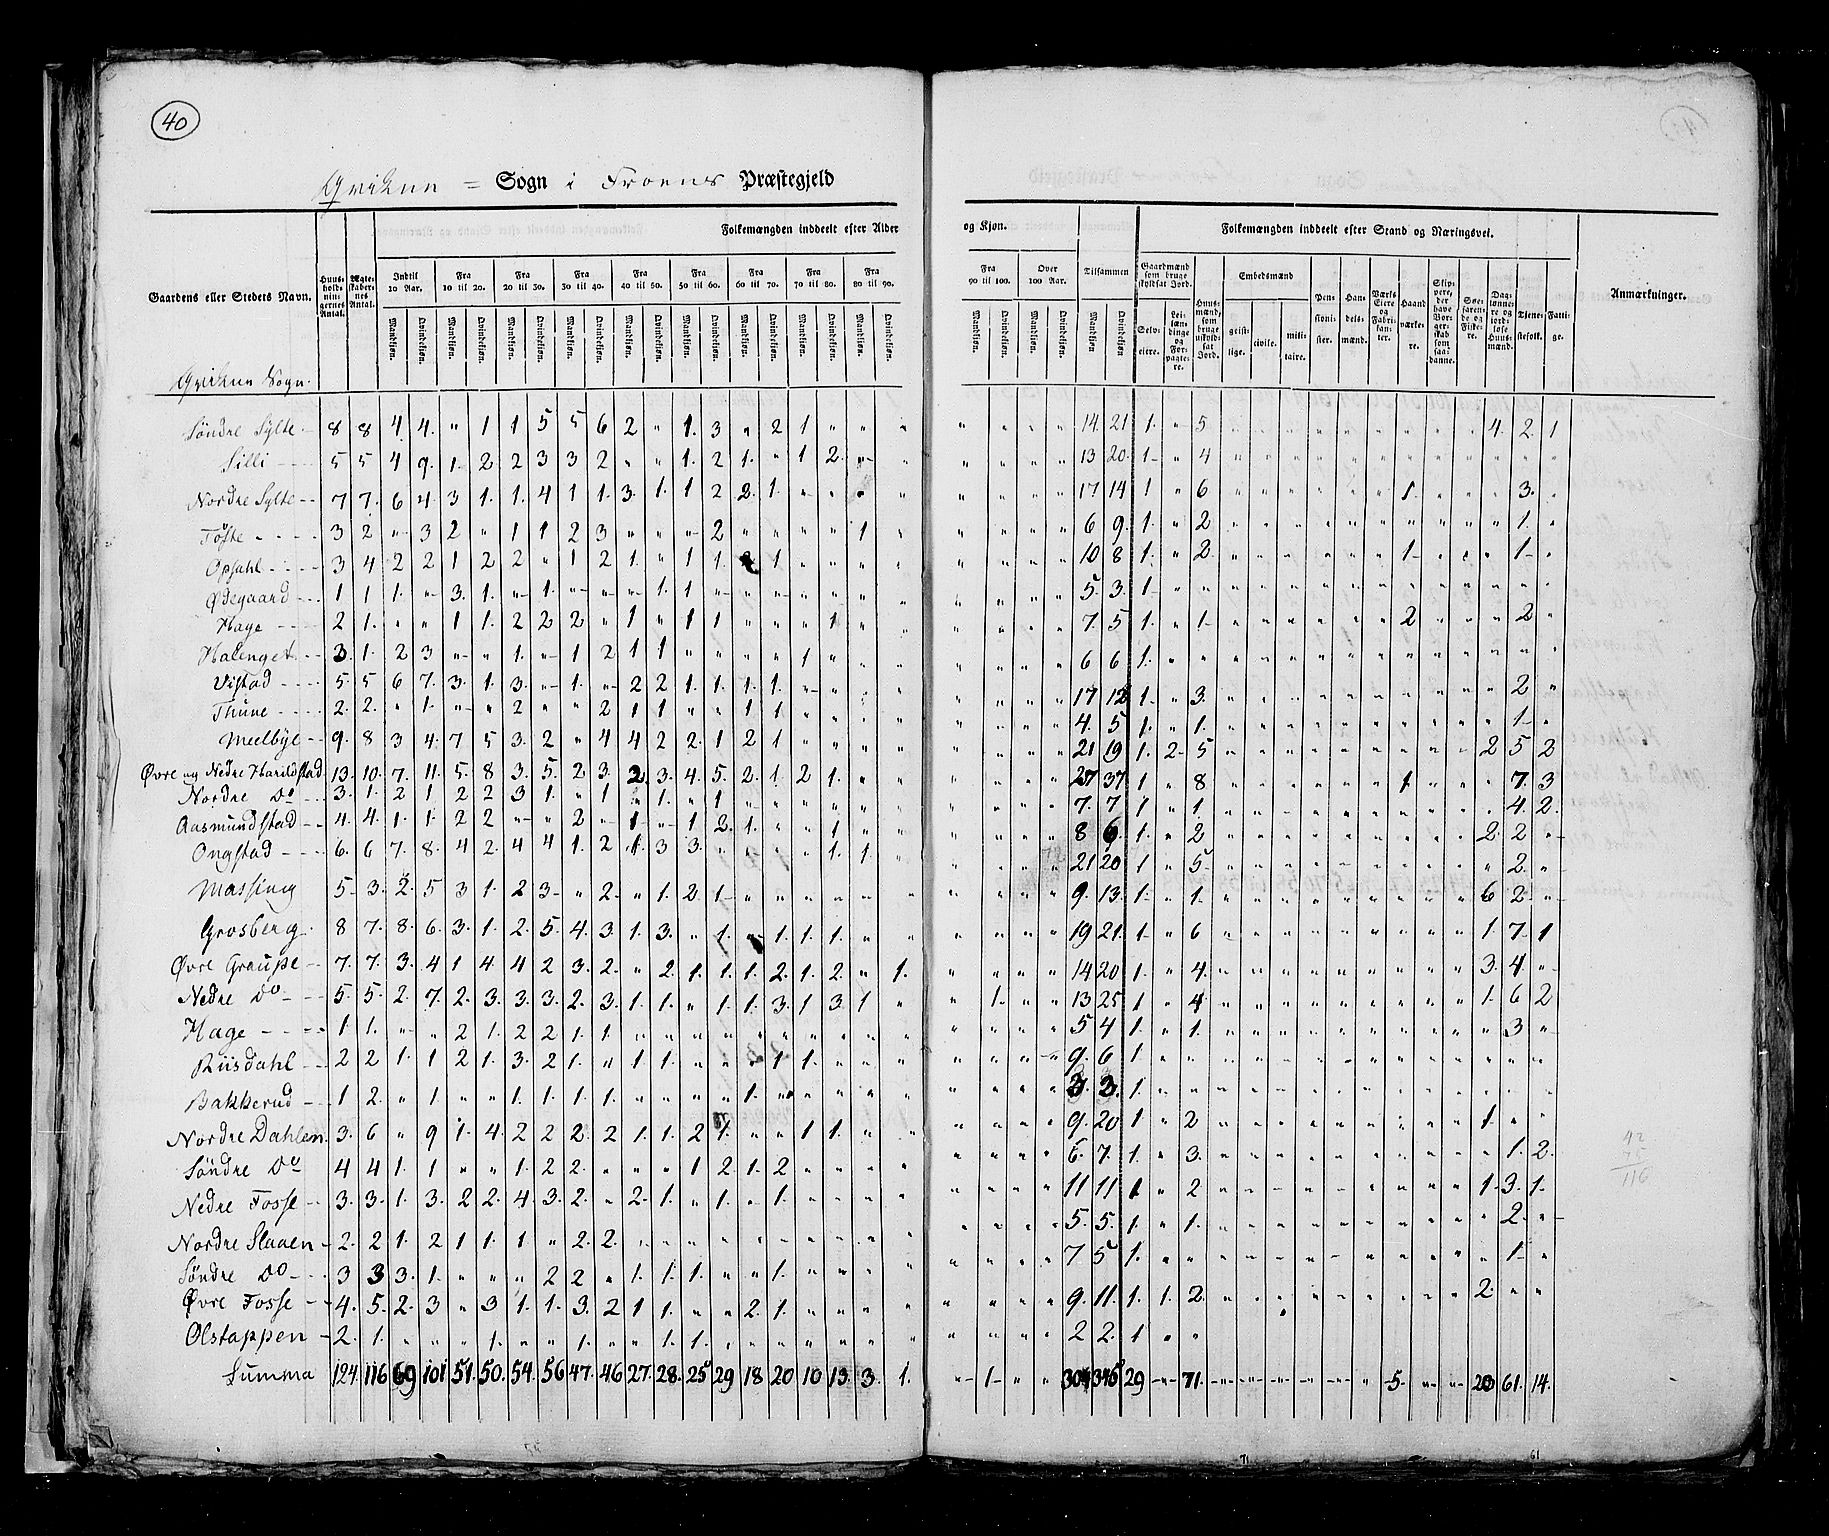 40
Qvikne = Sogn i Froens Præstegjeld
Gaardens eller Stedets Navn.
Huus-holdnin-gernes Antal.
Ægte-skaber-nes Antal.
Folkemængden inddeelt efter Alder og Kjøn.
Indtil 10 Aar.
Fra 10 til 20.
Fra 20 til 30.
Fra 30 til 40.
Fra 40 til 50.
Fra 50 til 60.
Fra 60 til 70.
Fra 70 til 80.
Fra 80 til 90.
Fra 90 til 100.
Over 100 Aar.
Tilsammen
Mandkjøn. Qvindekjøn.
Folkemængden inddeelt efter Stand og Næringsvei.
Gaardmænd som bruge skyldsat Jord.
Selv-eiere.
Lei-lændinge og For-pagte-re.
Huus-mænd som bruge uskyldsat Jord.
Embedsmænd
geist-lige.
civile.
mili-taire.
Pen-sioni-ster.
Han-dels-mænd.
Værks Eiere og Fabri-kan-ter.
Haand-værke-re.
Dag-lønne-re og jord-løse Huus-mænd.
Tjene-stefolk.
Fatti-ge.
Anmærkninger.
Qvikne Sogn.
Søndre Sylte 8 8 4 4 " 1 1 5 5 6 2 " 1 3 " 2 1 " " " " " " " 14 21 1 " 5 " " " " " " " " " 4 2 1
Silli 5 5 4 9 1 2 2 3 3 2 " " 1 2 1 " 1 2 " " " " " " 13 20 1 " 4
Nordre Sylte 7 7 6 4 3 1 1 4 1 1 3 1 1 2 2 1 " " " " " " " " 17 14 1 " 6 " " " " " " 1 " " " 3 "
Föste 3 2 " 3 2 " 1 1 2 3 " " " 2 " " " " 1 " " " " " 6 9 1 " 2 " " " " " " " " " " 1 "
Opsahl 3 4 2 2 1 2 2 " 1 2 1 " 1 1 2 1 " " " " " " " " 10 8 1 " 2 " " " " " " 1 " " " 1 "
Ødegaard 1 1 1 " 3 1 " 1 " " " 1 1 " " " " " " " " " " " 5 3 1
Hage 2 1 " " 1 1 2 2 2 " 1 " 1 1 " " " 1 " " " " " " 7 5 1 " 1 " " " " " " 2 " " " 2 "
Halenget 3 1 2 3 " " 1 " 1 2 1 1 " " " " 1 " " " " " " " 6 6 1
Vistad 5 5 6 7 3 1 3 " 1 " 2 2 1 1 1 1 " " " " " " " " 17 12 1 " 3 " " " " " " " " " " 2 "
Thune 2 2 " 1 " " 2 " " 2 1 1 " " 1 1 " " " " " " " " 4 5 1 " 1 " " " " " " " " " " 1 "
Meelbye 9 8 3 4 7 5 3 2 " 4 4 2 2 1 2 1 " " " " " " " " 21 19 1 2 5 " " " " " " " " " 2 5 2
Øvre og Nedre Harildstad 13 10 7 11 5 8 3 5 2 3 2 3 4 5 2 1 2 1 " " " " " " 27 37 1 " 8 " " " " " " 1 " " " 7 3
Nordre Do 3 1 2 1 2 2 3 1 " 1 " 1 " 1 " " " " " " " " " " 7 7 1 " 1 " " " " " " " " " " 4 2
Aasmundstad 4 4 1 1 2 2 " " 2 " 1 " 1 2 1 " " 1 " " " " " " 8 6 1 " 2 " " " " " " " " " 2 2 "
Ongstad 6 6 7 8 4 2 4 4 1 2 1 3 3 " " " " 1 1 " " " " " 21 20 1 " 5 " " " " " " " " " " 2 "
Massing 5 3 2 5 3 1 2 3 " 2 " 1 2 1 " " " " " " " " " " 9 13 1 " 1 " " " " " " " " " 6 2 "
Grosberg 8 7 8 6 3 1 2 5 4 3 1 3 " 1 " 1 1 1 " " " " " " 19 21 1 " 6 " " " " " " " " " 1 7 1
Øvre Graupe 7 7 3 4 1 4 4 2 3 2 " 2 1 1 1 2 1 2 " 1 " " " " 14 20 1 " 4 " " " " " " " " " 3 4 "
Nedre Do 5 5 2 7 2 3 3 3 2 3 1 1 " 1 1 3 1 3 1 " " 1 " " 13 25 1 " 4 " " " " " " " " " 1 6 2
Hage 1 1 " " 2 1 2 2 1 1 " " " " " " " " " " " " " " 5 4 1 " 1 " " " " " " " " " " 3 "
Riisdahl 2 2 1 1 2 1 3 2 1 " 1 1 " " " 1 1 " " " " " " " 9 6 1
Bakkerud 1 2 " 1 " " 1 1 1 1 " " " " 1 " " " " " " " " " 3 3 1
Nordre Dahlen 3 6 " 9 1 4 2 2 2 2 1 1 2 1 " " 1 1 " " " " " " 9 20 1 " 2 " " " " " " " " " 1 " "
Søndre Do 4 4 1 1 " " 1 2 2 " " " 1 2 1 2 " " " " " " " " 6 7 1 " 3 " " " " " " " " " " 1 2
Nedre Fosse 3 3 1 3 2 2 4 3 2 " 2 1 " 1 " 1 " " " " " " " " 11 11 1 " 2 " " " " " " " " " 1 3 1
Nordre Slaaen 2 2 1 2 1 1 1 " 2 2 " " " " " " " " " " " " " " 5 5 1 " 1 " " " " " " " " " " 2 "
Søndre Do 3 3 3 1 " " " 2 2 " 1 1 1 " " 1 " " " " " " " " 7 5 1 " " " " " " " " " " " " 1 "
Øvre Fosse 4 5 2 3 " 3 1 1 3 2 1 1 " " 2 1 " " " " " " " " 9 11 1 1 2 " " " " " " " " " 2 " "
Olstappen 2 1 " " " 1 " " 1 " " 1 1 " " " " " " " " " " " 2 2 1 " "
Summa 124 116 69 101 51 50 54 56 47 46 27 28 25 29 18 20 10 13 3 1 " 1 " " 304 345 29 " 71 " " " " " " 5 " " 20 61 14
42
45
116
71
61